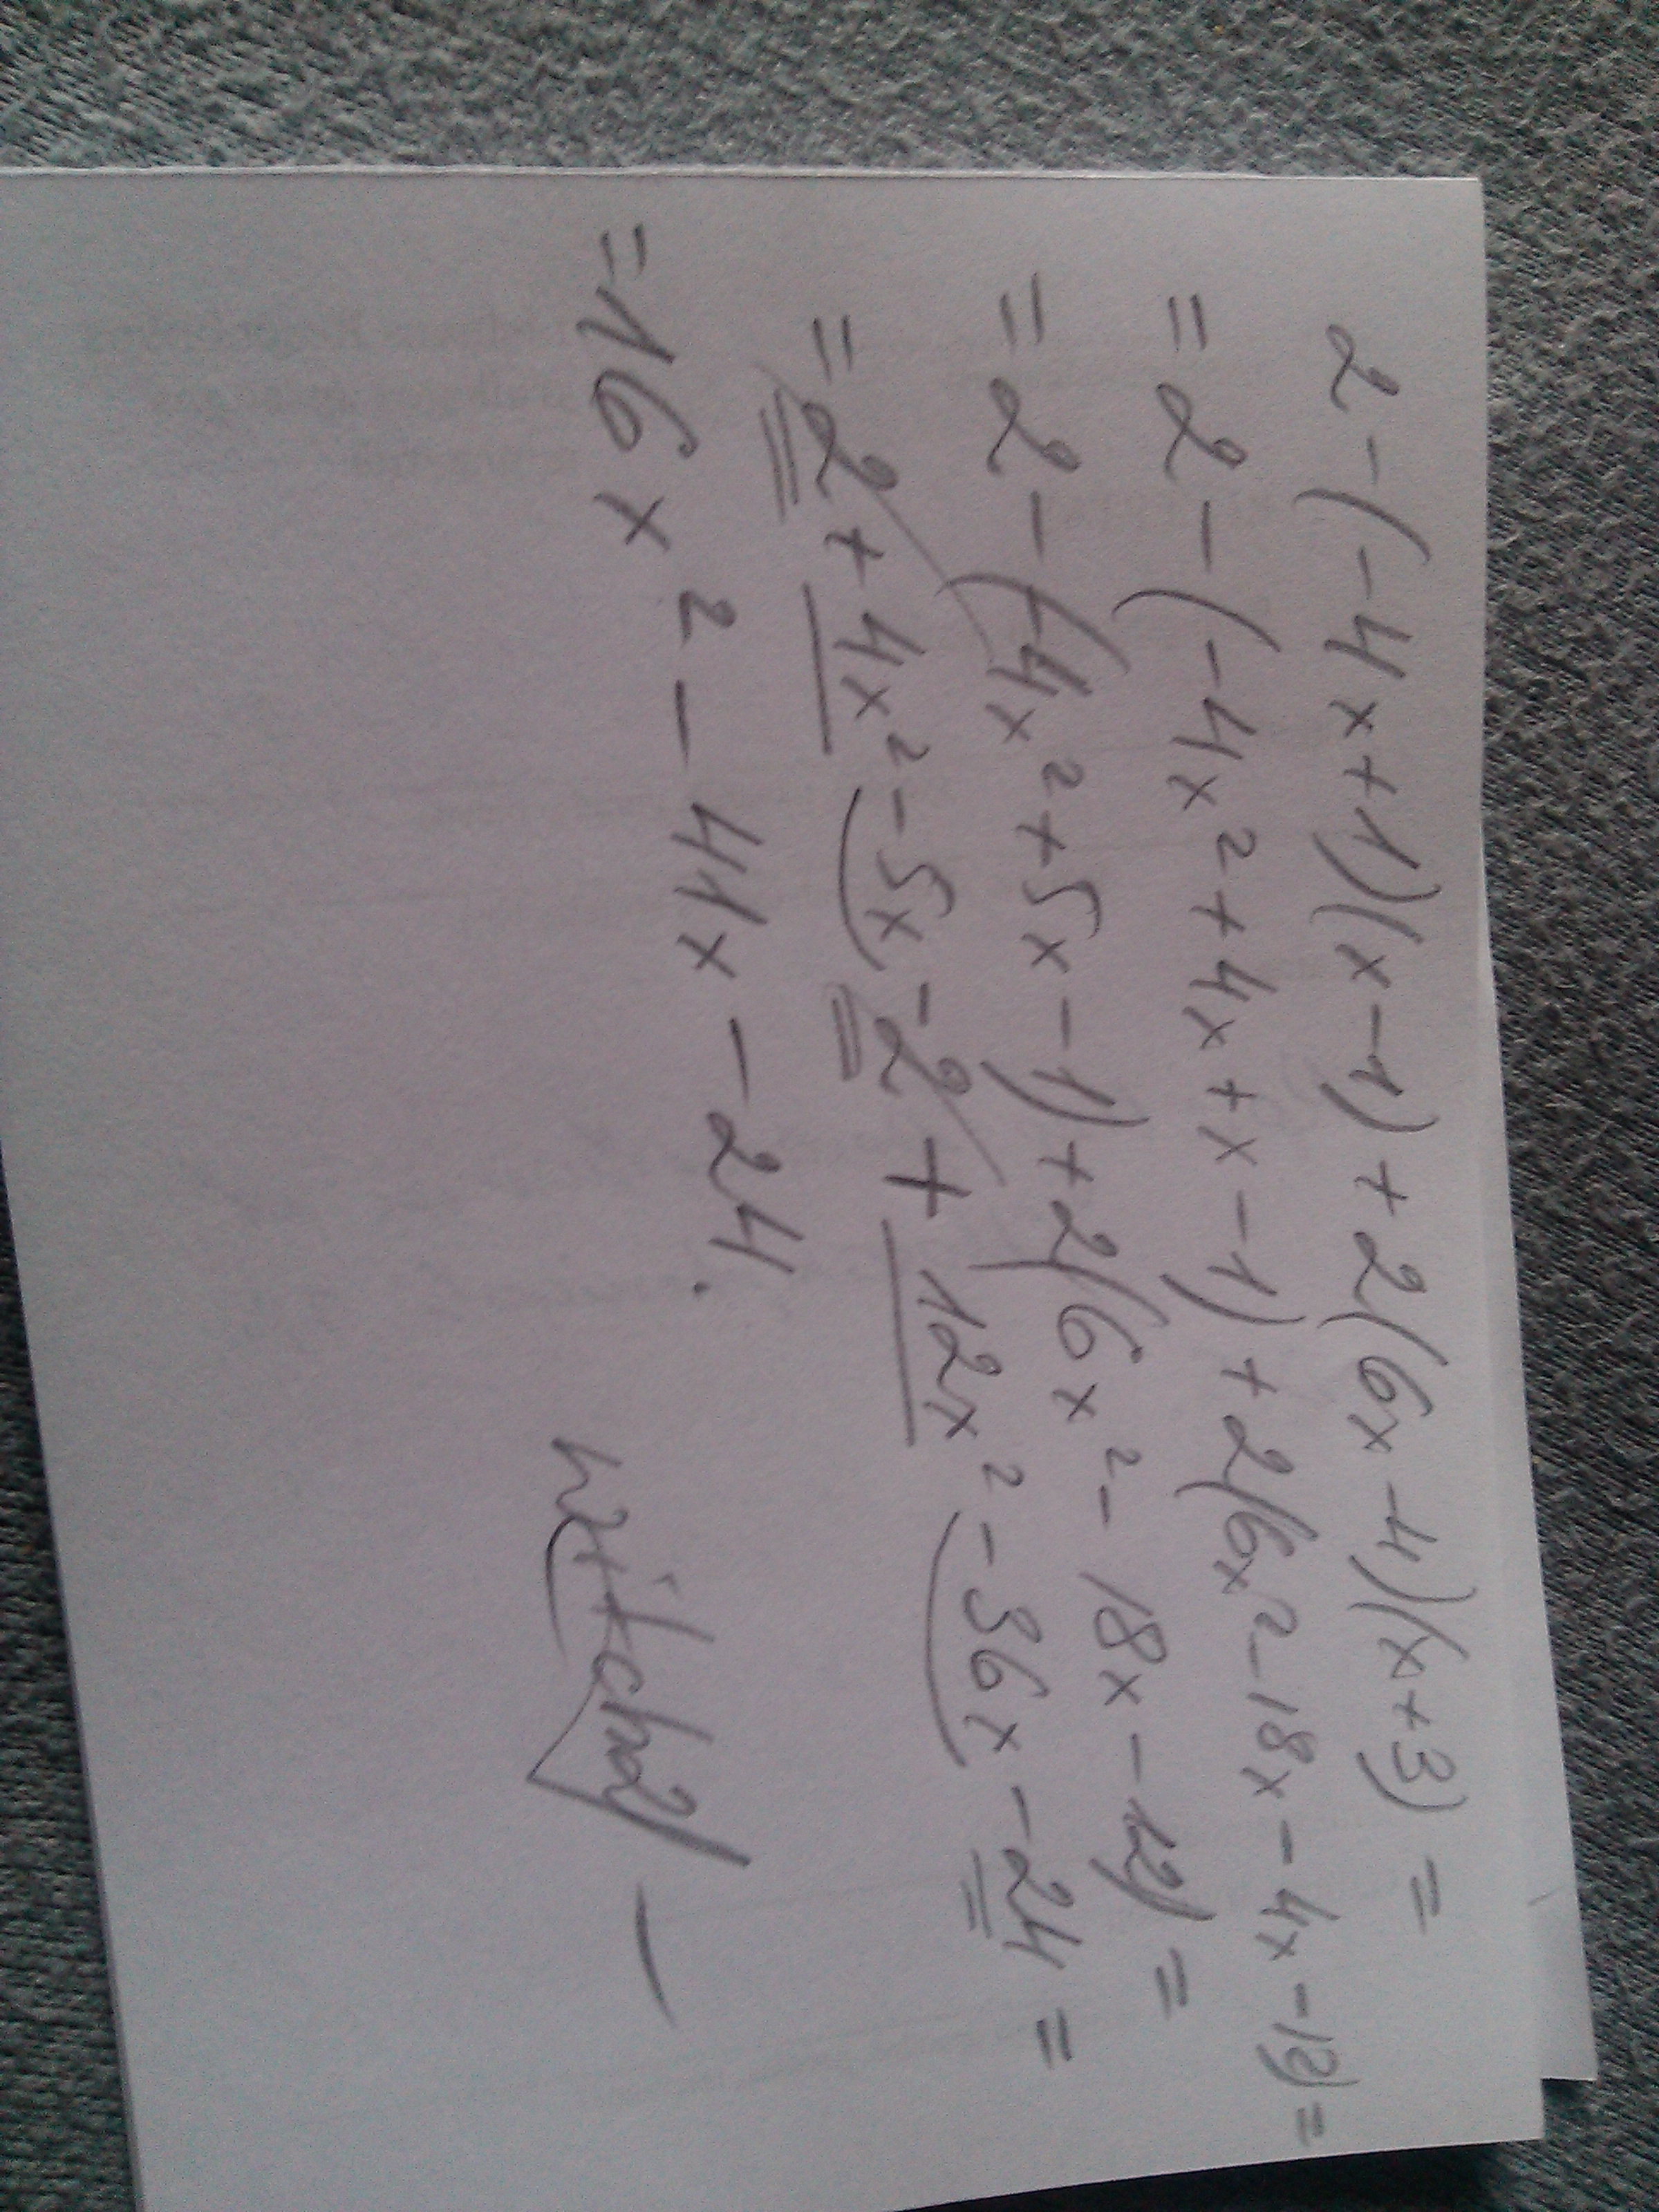 2-(-4x+1)(x-1)+2(6x-4)(x+3)=
=2-(-4x²+4x+x-1)+2(6x²-18x-4x-12)=
=2-(4x²+5x-1)+2(6x²-18x-12)=
=2+4x²-5x-2+12x²-36x-24=
=16x²-41x-24.